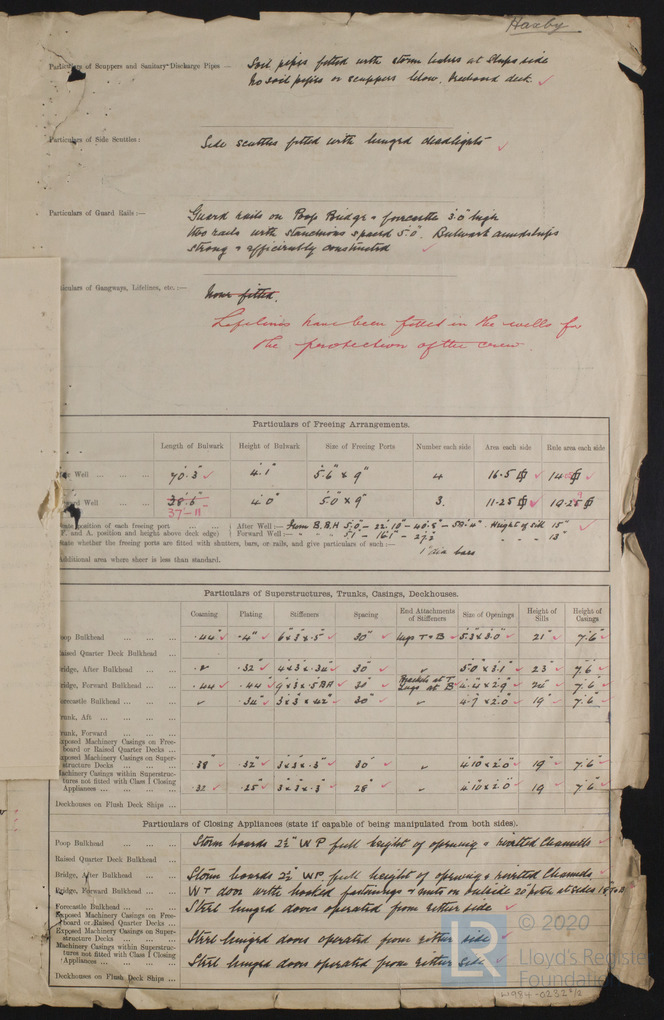 Haxby
Particulars of Scuppers and Sanitary Discharge Pipes — Soil pipes fitted with storm valves at Ships side
No soil pipes or scuppers below freeboard deck ✓
Particulars of Side Scuttles: Side scuttles fitted with hinged deadlights ✓
Particulars of Guard Rails:— Guard rails on Poop Bridge & forecastle 3'.0" high
two rails with stanchions spaced 5'.0". Bulwark amidships
strong & efficiently constructed ✓
ticulars of Gangways, Lifelines, etc.:— None fitted.
Lifelines have been fitted in the wells for
the protection of the crew.
Particulars of Freeing Arrangements.
Length of Bulwark Height of Bulwark Size of Freeing Ports Number each side Area each side Rule area each side
Well ... ... ... 70'.3" ✓ 4'.1" 5'.6" x 9" 4 16.5 ✓
Well ... ... 38'.6" 4'.0" 5'.0" x 9" 3. 11.25 ✓
37'-11"
state position of each freeing port ... ... After Well:— from B.B.H 5'.0" - 22'.10" - 40'.8" - 58'.4" Height of sill 15" ✓
F. and A. position and height above deck edge) Forward Well:— " " " 5'1" - 16'.1" - 27'.2" " " " 13"
State whether the freeing ports are fitted with shutters, bars, or rails, and give particulars of such:—
1" dia bars
Additional area where sheer is less than standard.
Particulars of Superstructures, Trunks, Casings, Deckhouses.
Coaming Plating Stiffeners Spacing End Attachments of Stiffeners Size of Openings Height of Sills Height of Casings
Poop Bulkhead ... ... ... .44" ✓ .4" ✓ 6" x 3" x .5" ✓ 30" ✓ lugs T & B ✓ 5'.3" x 3'.0" ✓ 21" ✓ 7'.6" ✓
Raised Quarter Deck Bulkhead ...
Bridge, After Bulkhead ... ... .32" ✓ 4" x 3" x .34" ✓ 30" ✓ 5'0" x 3'.1" ✓ 23" ✓ 7'.6 ✓
Bridge, Forward Bulkhead ... ... .44 ✓ .44" ✓ 9" x 3" x .5 BH ✓ 30" ✓ Brackets at T Lugs at B ✓ 4'.4" x 2'.9" ✓ 24" ✓ 7'.6" ✓
Forecastle Bulkhead ... ... ... .34" ✓ 3" x 3" x .42" ✓ 30" ✓ 4'.7 x 2'.0" ✓ 19" ✓ 7'.6" ✓
Trunk, Aft ... ... ...
Trunk, Forward ... ...
Exposed Machinery Casings on Free-
board or Raised Quarter Decks ...
Exposed Machinery Casings on Super-
structure Decks ... ... ... .38" ✓ .32" ✓ 3" x 3" x .3" ✓ 30" ✓ 4'.10" x 2'.0" ✓ 19" ✓ 7'.6" ✓
Machinery Casings within Superstruc-
tures not fitted with Class I Closing
Appliances ... ... ... .32 ✓ .25" ✓ 3" x 3" x .3" ✓ 28" ✓ 4'.10 x 2'.0" ✓ 19 ✓ 7'.6" ✓
Deckhouses on Flush Deck Ships ...
Particulars of Closing Appliances (state if capable of being manipulated from both sides).
Poop Bulkhead ... ... ... Storm boards 2½" W P full height of opening & rivetted Channels ✓
Raised Quarter Deck Bulkhead ...
Bridge, After Bulkhead ... ... Storm boards 2½" WP full height of opening & rivetted Channels ✓
Bridge, Forward Bulkhead ... ... W T door with hooked fastenings & nuts on outside 20" pitch at sides
Forecastle Bulkhead ... ... ... Steel hinged doors operated from either side ✓
Exposed Machinery Casings on Free-
board or Raised Quarter Decks ...
Exposed Machinery Casings on Super-
structure Decks ... ... ... Steel hinged doors operated from either side ✓
Machinery Casings within Superstruc-
tures not fitted with Class I Closing
Appliances ... ... ... Steel hinged doors operated from either side ✓
Deckhouses on Flush Deck Ships ...
LR © 2020
Lloyd's Register
Foundation
W984-0232 2/2